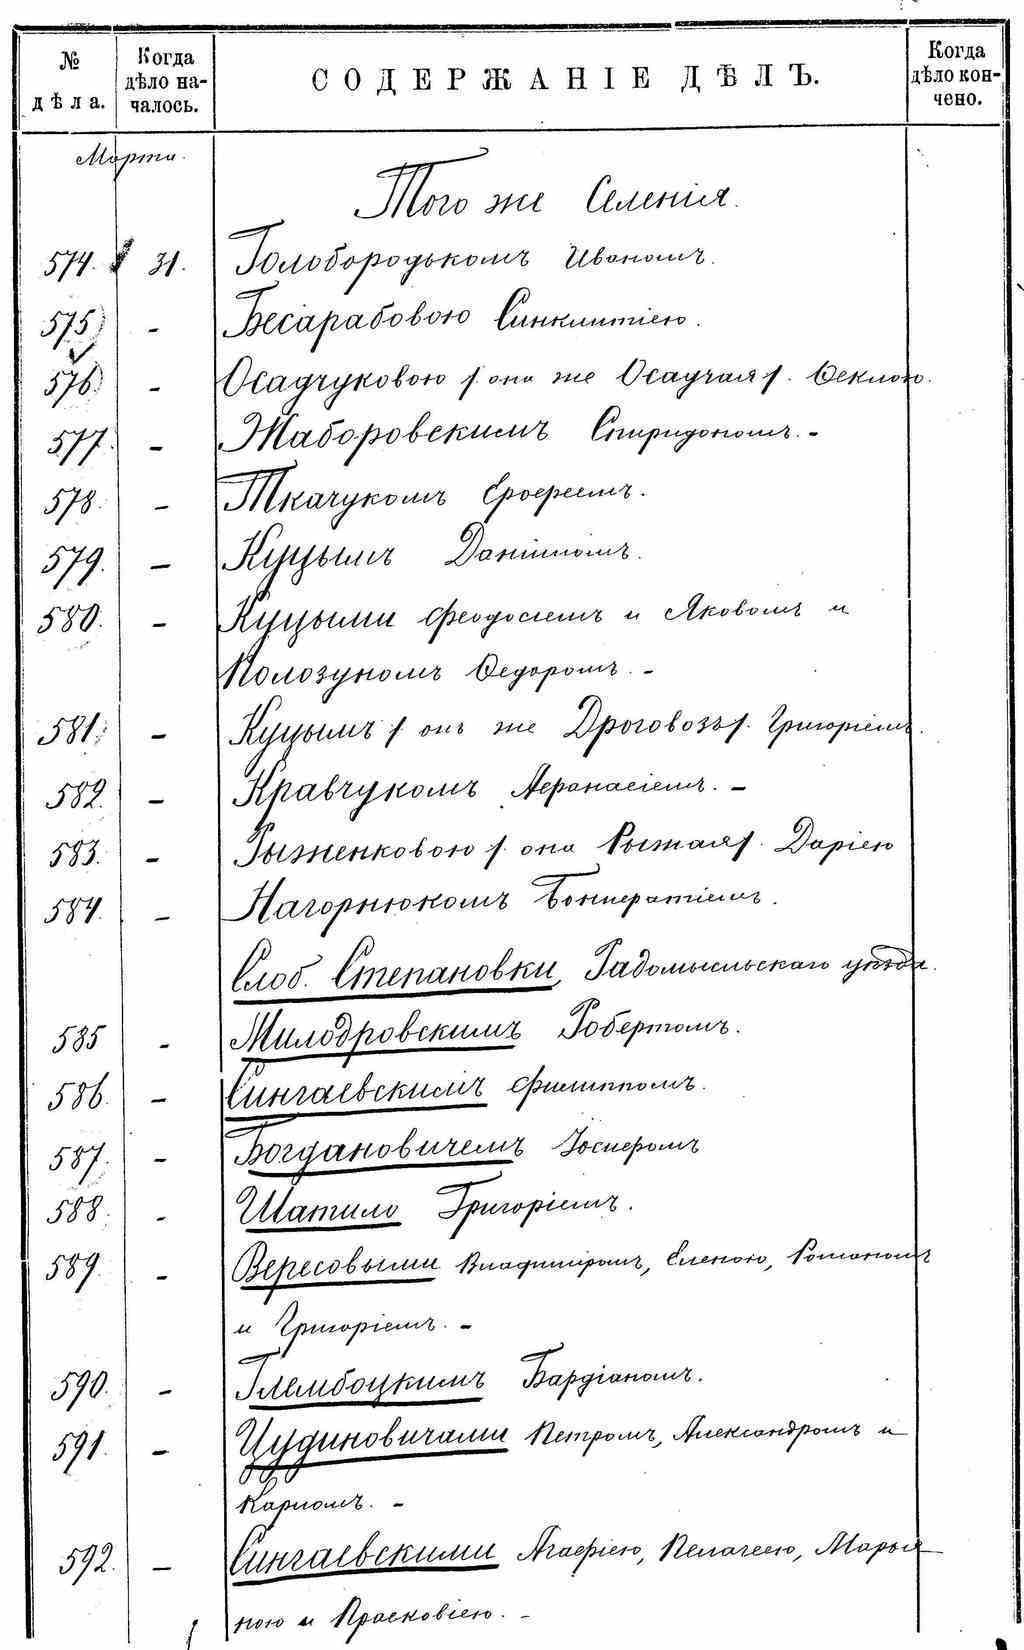 № дѣла. Когда дѣло началось. СОДЕРЖАНІЕ ДѢЛЪ. Когда дѣло кончено.
Марта.
Того же Селенія.
574. 31. Голобородькомъ Иваномъ.
575 - Бесарабовою Синклитіею.
576 - Осадчуковою /она же Осадчая/. Ѳеклою.
577. - Жаборовскимъ Спиридономъ. -
578. - Ткачукомъ Ерофеемъ.
579. - Куцымъ Даніиломъ.
580. - Куцыми Феодосіемъ и Яковомъ и
Полозуномъ Ѳедоромъ. -
581. - Куцымъ /онъ же Дроговозъ/. Григоріемъ.
582. - Кравчукомъ Афанасіемъ. -
583. - Рыженковою /она Рыжая/. Даріею
584. - Нагорнюкомъ
Слоб. Степановки, Радомысльскаго уѣзда.
585 - Милодровскимъ Робертомъ.
586. - Сингаевскимъ Филиппомъ.
587. - Богдановичемъ Іосифомъ
588. - Шатило Григоріемъ.
589. - Вересовыми Владиміромъ, Еленою, Романомъ
и Григоріемъ. -
590. - Глембоцкимъ Вардіаномъ.
591. - Цудиновичами Петромъ, Александромъ и
Карломъ. -
592. - Сингаевскими Агафіею, Пелагеею, Марья
ною и Прасковіею. -